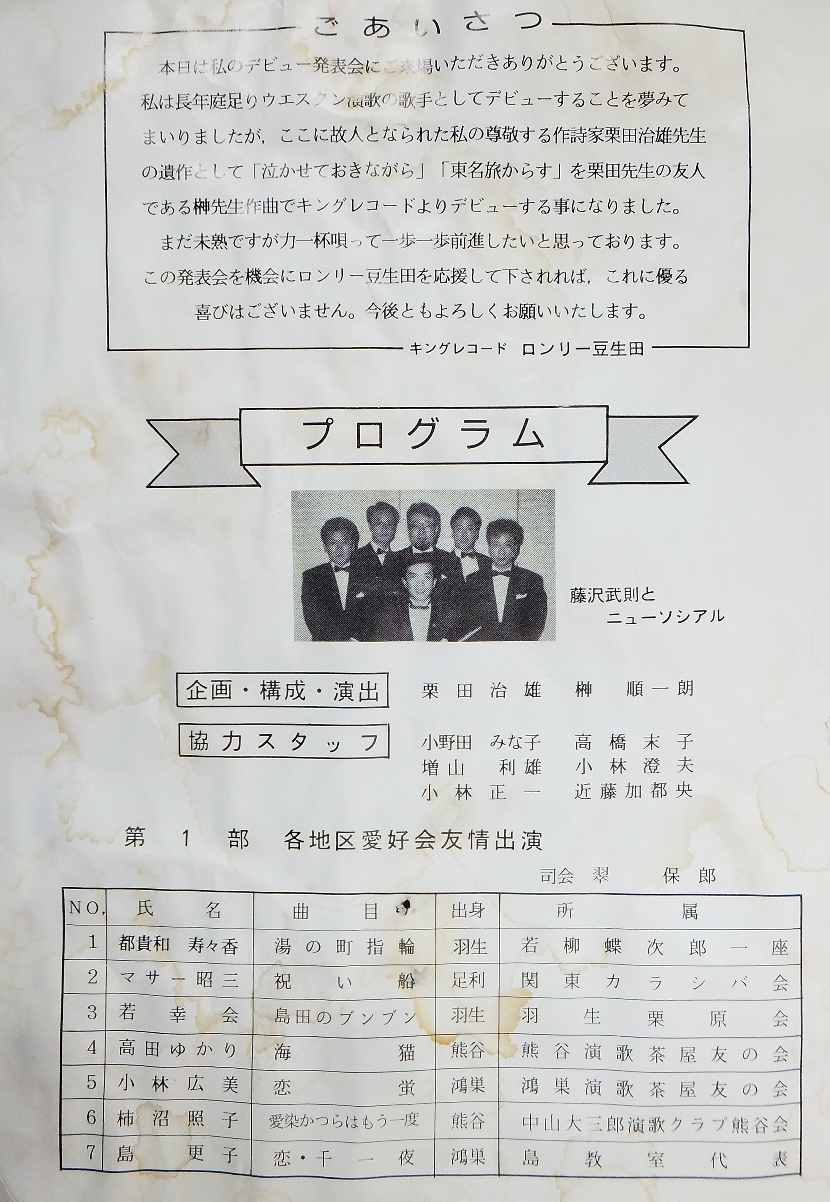 ごあいさつ
本日は私のデビュー発表会にご来場いただきありがとうございます。
私は長年庭足りウエスタン演歌の歌手としてデビューすることを夢みて
まいりましたが，ここに故人となられた私の尊敬する作詩家栗田治雄先生
の遺作として「泣かせておきながら」「東名旅からす」を栗田先生の友人
である榊先生作曲でキングレコードよりデビューする事になりました。
まだ未熟ですが力一杯唄って一歩一歩前進したいと思っております。
この発表会を機会にロンリー豆生田を応援して下されれば，これに優る
喜びはございません。今後ともよろしくお願いいたします。
キングレコード ロンリー豆生田
プログラム
藤沢武則と
ニューソシアル
企画・構成・演出 栗田治雄 榊順一朗
協力スタッフ 小野田みな子 高橋末子
増山利雄 小林澄夫
小林正一 近藤加都央
第1部 各地区愛好会友情出演
司会 翠 保郎
NO. 氏名 曲目 出身 所属
1 都貴和 寿々香 湯の町指輪 羽生 若柳蝶次郎一座
2 マサー昭三 祝い船 足利 関東カラシバ会
3 若幸会 島田のブンブン 羽生 羽生栗原会
4 高田ゆかり 海猫 熊谷 熊谷演歌茶屋友の会
5 小林広美 恋蛍 鴻巣 鴻巣演歌茶屋友の会
6 柿沼照子 愛染かつらはもう一度 熊谷 中山大三郎演歌クラブ熊谷会
7 島更子 恋・千一夜 鴻巣 島教室代表